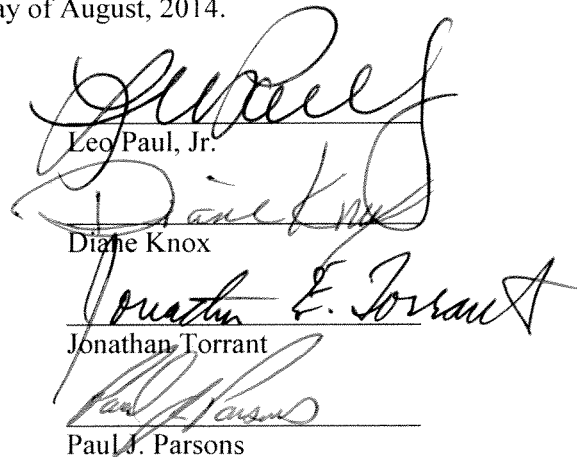 ay of August, 2014.
Leo Paul, Jr.
Diane Knox
Diane Knox
Jonathan E. Torrant
Jonathan Torrant
Paul J. Parsons
Paul J. Parsons